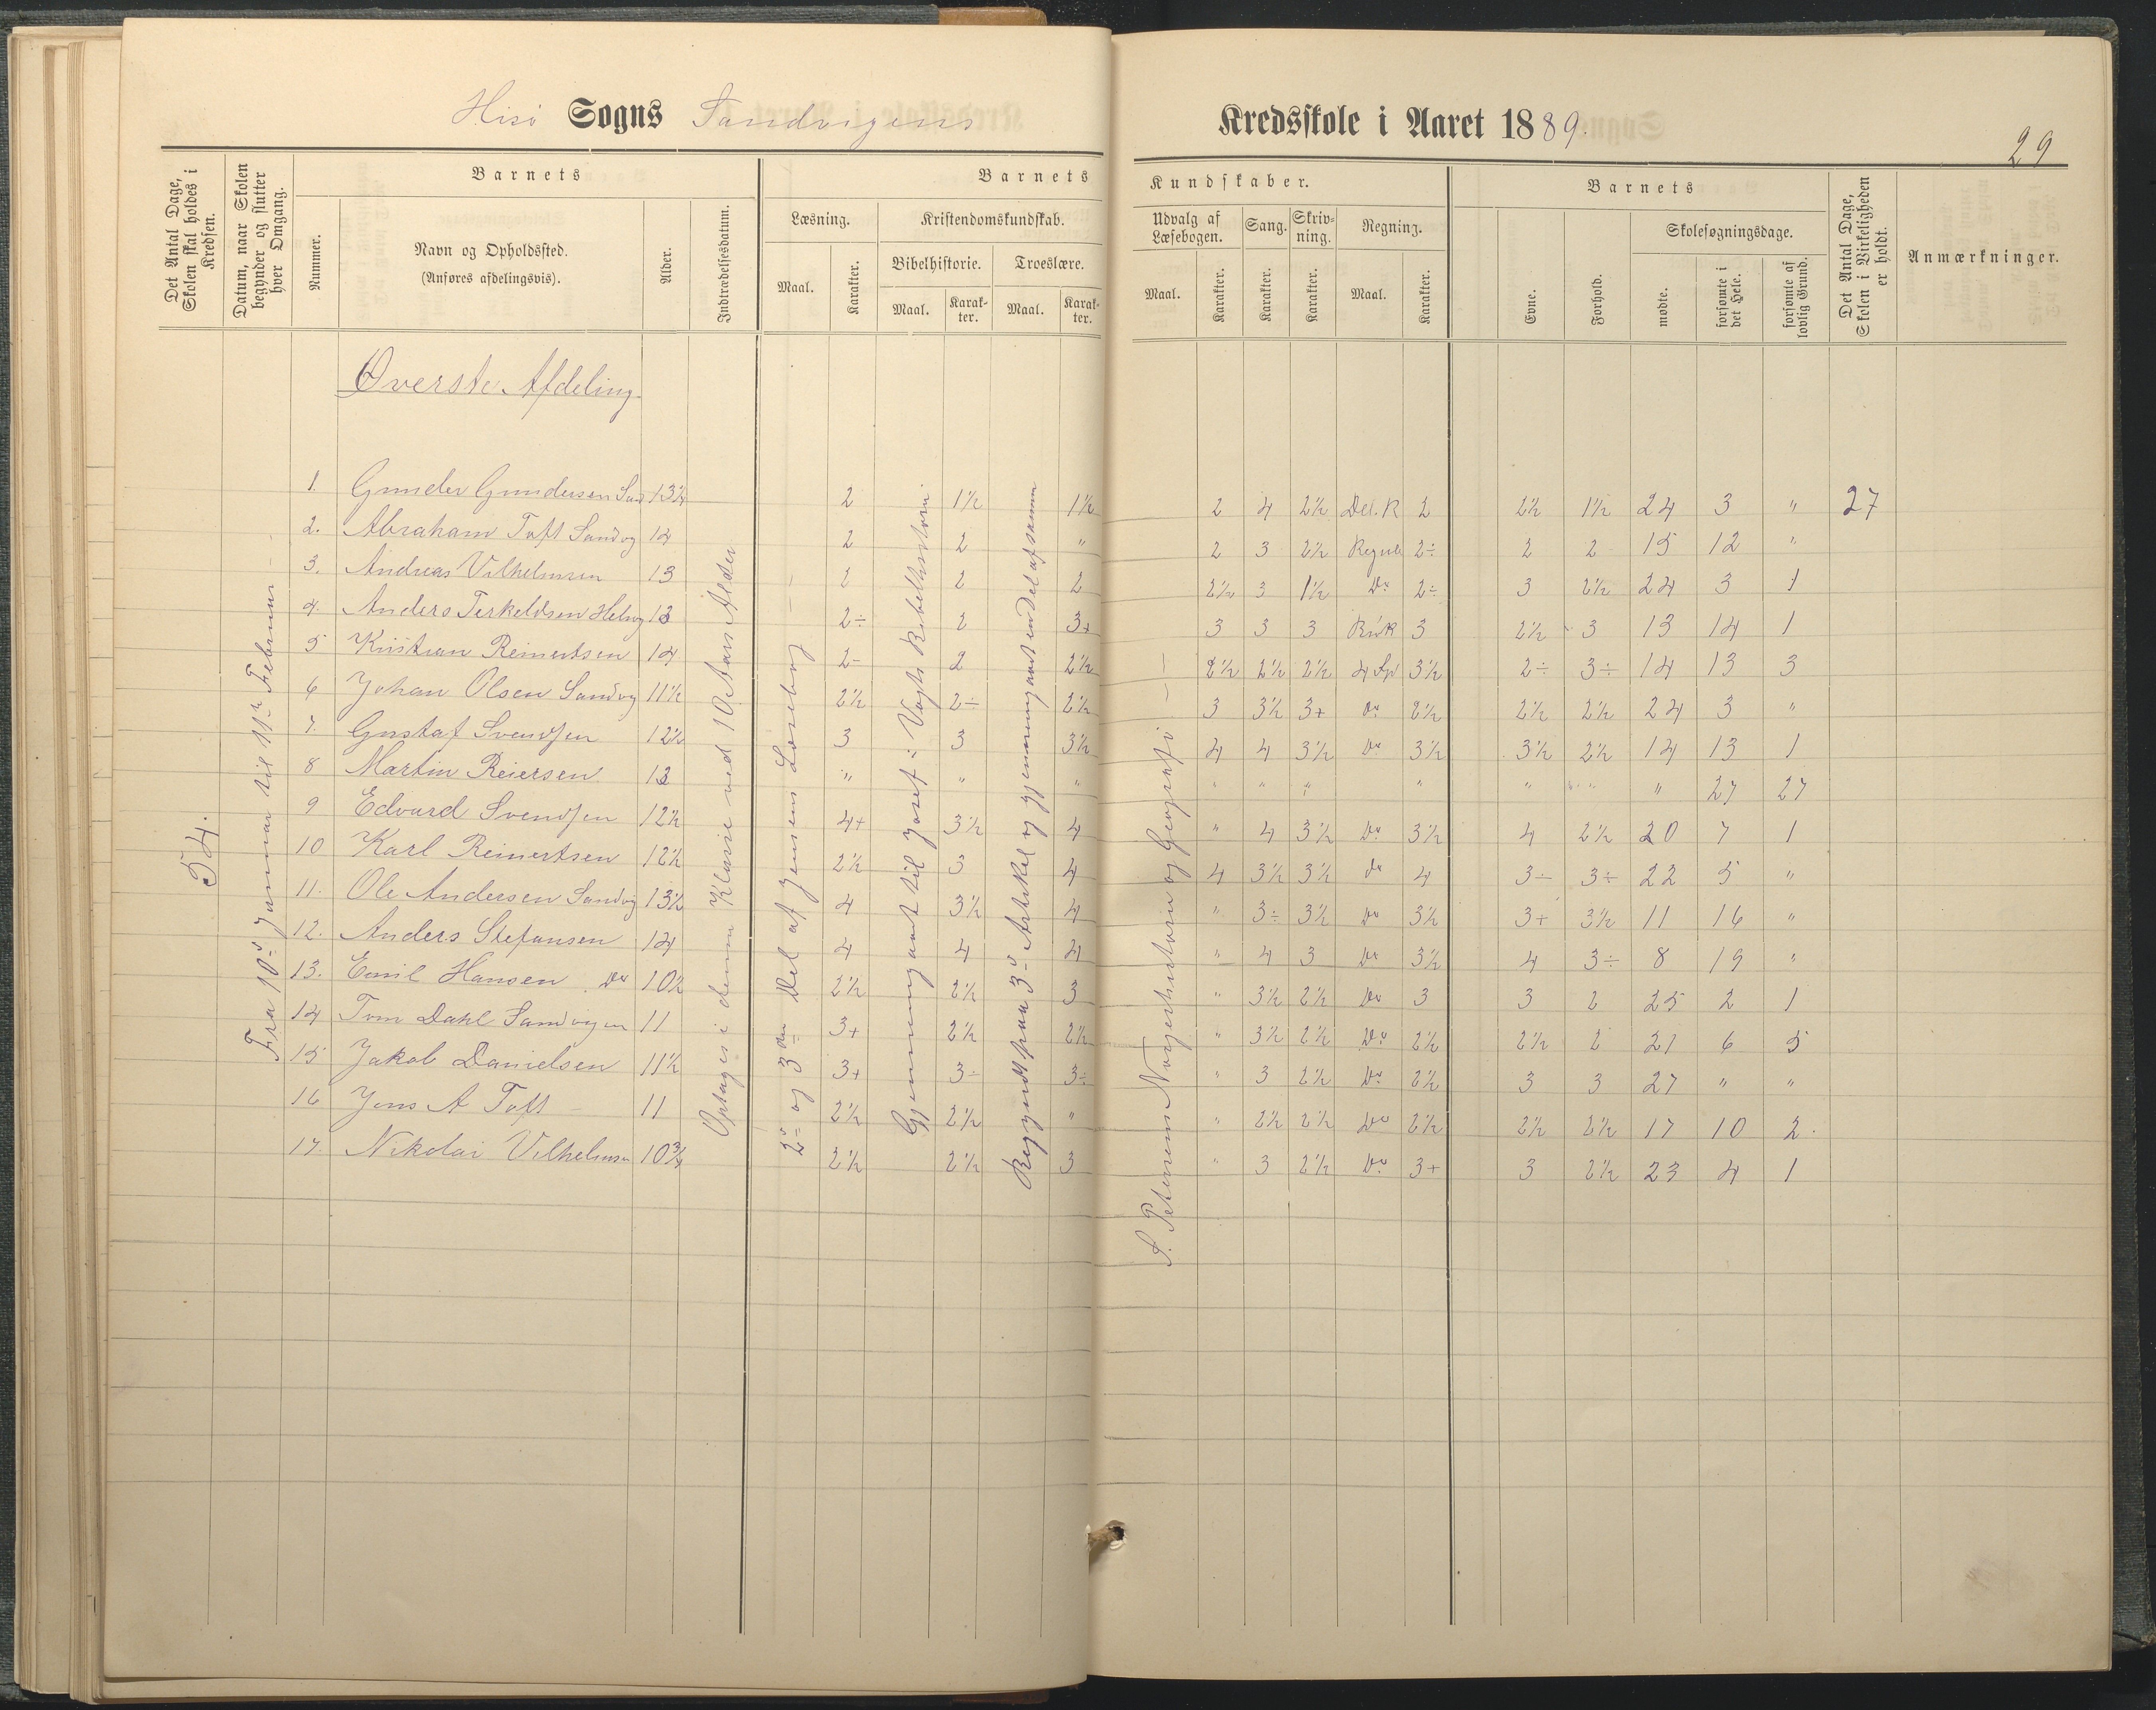 Hisø Sogns Sandvigens Kredsskole i Aaret 1889.
29
Det Antal Dage, Skolen skal holdes i Kredsen.
Datum, naar Skolen begynder og slutter hver Omgang.
Barnets
Nummer.
Navn og Opholdssted.
(Anføres afdelingsvis).
Alder.
Indtrædelsesdatum.
Barnets
Læsning.
Maal.
Karakter.
Kristendomskundskab.
Bibelhistorie.
Maal.
Karakter.
Troeslære.
Maal.
Karakter.
Kundskaber.
Udvalg af Læsebogen.
Maal.
Karakter.
Sang.
Karakter.
Skrivning.
Karakter.
Regning.
Maal.
Karakter.
Barnets
Evne.
Forhold.
Skolesøgningsdage.
mødte.
forsømte i det Hele.
forsømte af lovlig Grund.
Det Antal Dage, Skolen i Virkeligheden er holdt.
Anmærkninger.
Øverste Afdeling
54.
Fra 10de Januar til 11te Februar
Optages i denne Klasse ved 10 Aars Alder
2den og 3die Del af Jensens Læsebog
Gjennemgaaet til Josef i Vogts Bibelhistorie
Begyndt paa 3die Artikel og gjennemgaaet en Del af samme
S. Petersens Norgeshistorie og Geografi
1. Gunder Gundersen Sand 13¼ 2 1½ 1½ 2 4 2½ Del. R 2 2½ 1½ 24 3 " 27
2. Abraham Toft Sandvg 14 2 2 " 2 3 2½ Regule 2÷ 2 2 15 12 "
3. Andreas Vilhelmsen 13 2 2 2 2½ 3 1½ Do 2÷ 3 2½ 24 3 1
4. Anders Terkeldsen 13 2÷ 2 3+ 3 3 3 3 2½ 3 13 14 1
5 Kristian Reinertsen 14 2- 2 2½ 2½ 2½ 2½ 4 Sp 3½ 2÷ 3÷ 14 13 3
6 Johan Olsen Sandvg 11½ 2½ 2÷ 2½ 3 3½ 3+ Do 2½ 2½ 2½ 24 3 "
7. Gustaf Svendsen 12½ 3 3 3½ 4 4 3½ Do 3½ 3½ 2½ 14 13 1
8 Martin Reiersen 13 " " " " " " " " " " 27 27
9 Edvard Svendsen 12½ 4+ 3½ 4 " 4 3½ Do 3½ 4 2½ 20 7 1
10 Karl Reinertsen 12½ 2½ 3 4 4 3½ 3½ Do 4 3÷ 3÷ 22 5 "
11. Ole Andersen Sandvg 13½ 4 3½ 4 " 3÷ 3½ Do 3½ 3+ 3½ 11 16 "
12. Anders Stefansen 14 4 4 4 " 4 3 Do 3½ 4 3÷ 8 19 "
13. Emil Hansen Do 10½ 2½ 2½ 3 " 3½ 2½ Do 3 3 2 25 2 1
14 Tom Dahl Sandvigen 11 3+ 2½ 2½ " 3½ 2½ Do 2½ 2½ 2 21 6 5
15 Jakob Danielsen 11½ 3+ 3÷ 3÷ " 3 2½ Do 2½ 3 3 27 " "
16 Jens A Toft 11 2½ 2½ " " 2½ 2½ Do 2½ 2½ 2½ 17 10 2
17. Nikolai Vilhelmsn 10¾ 2½ 2½ 3 " 3 2½ Do 3+ 3 2½ 23 4 1